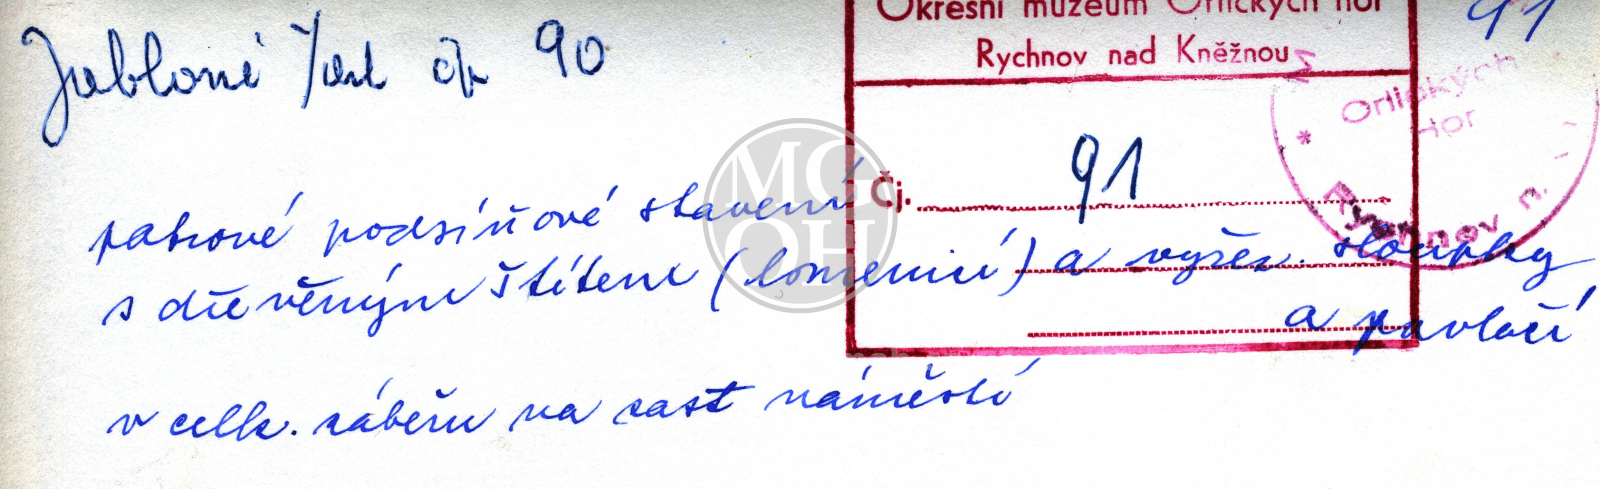 Jablonné n/Orl čp 90
Okresní muzeum Orlických hor
Rychnov nad Kněžnou
91
Čj. 91
Orlických
Hor
* Rychnov n.
MG
OH
patrové podsíňové stavení
s dřevěným štítem (lomenicí) a vyřez. sloupky
a pavlačí
v celk. záběru na část náměstí